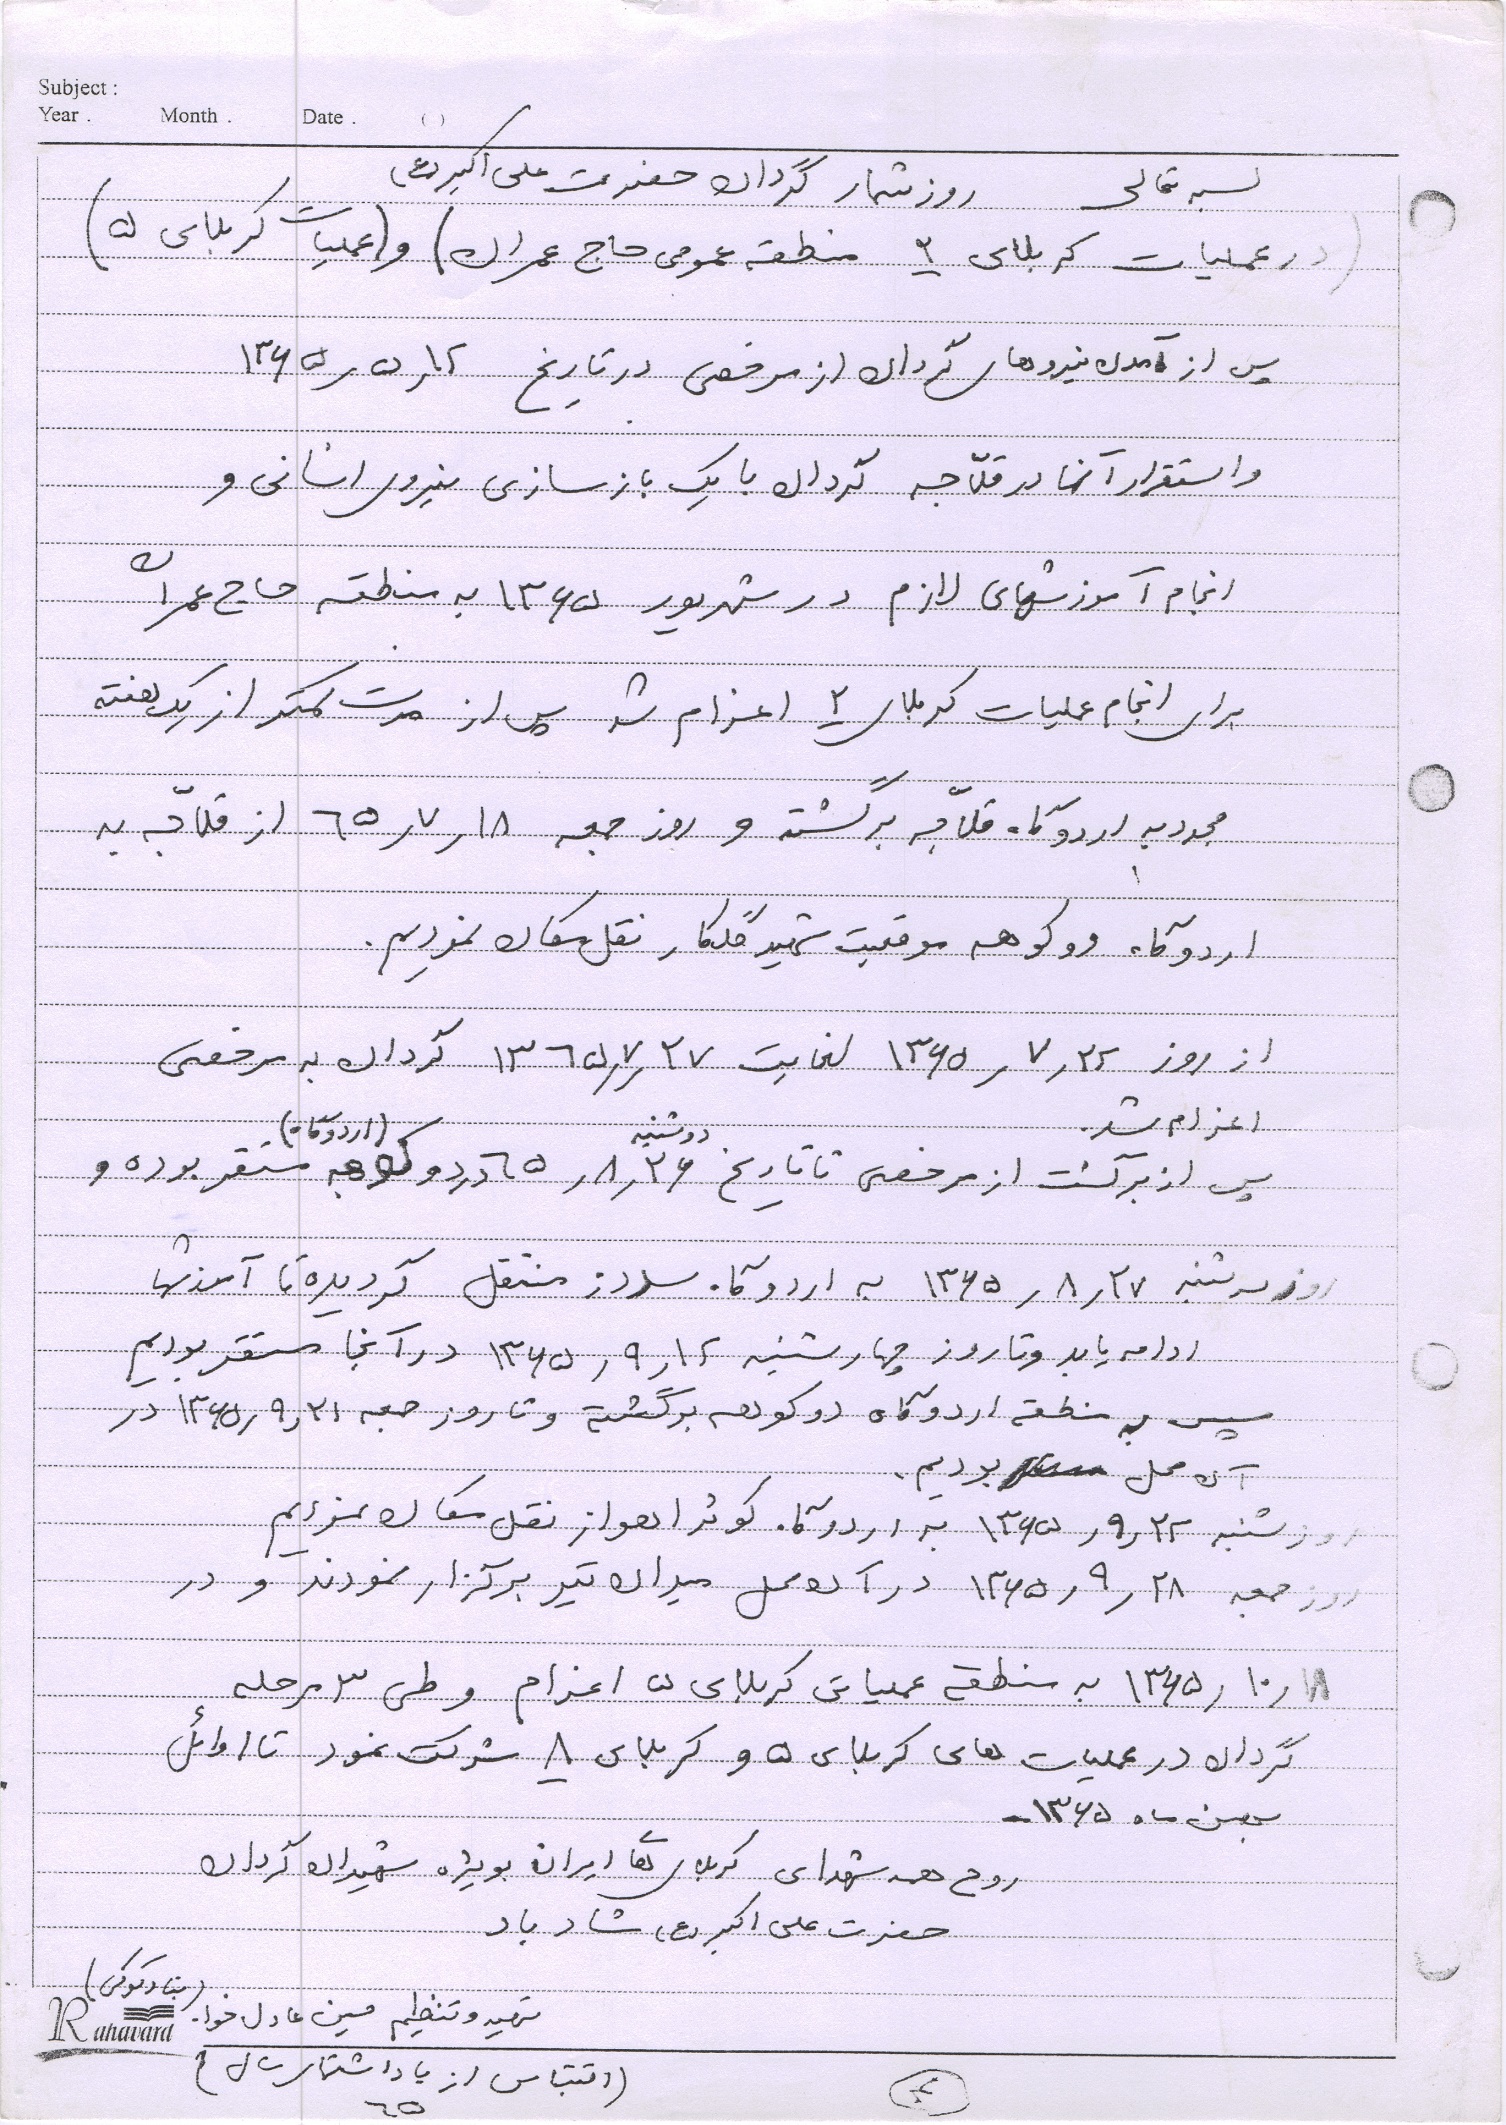 Subject :
Year . Month . Date . ( )
بسمه تعالی روز شمار گردان حضرت علی اکبر (ع)
(در عملیات کربلای ۲ منطقه عمومی حاج عمران) و (عملیات کربلای ۵)
پس از آمدن نیروهای گردان از مرخصی در تاریخ ۱۲ر۵ر۱۳۶۵
و استقرار آنها در قلّاجه گردان با یک بازسازی نیروی انسانی و
انجام آموزشهای لازم در شهریور ۱۳۶۵ به منطقه حاج عمران
برای انجام عملیات کربلای ۲ اعزام شد پس از مدت کمتر از یک هفته
مجدد به اردوگاه قلّاجه برگشته و روز جمعه ۱۸ر۷ر۶۵ از قلّاجه به
اردوگاه دوکوهه موقعیت شهید گلکار نقل مکان نمودیم.
از روز ۲۲ر۷ر۱۳۶۵ لغایت ۲۷ر۷ر۱۳۶۵ گردان به مرخصی
اعزام شد.
پس از برگشت از مرخصی تا تاریخ دوشنبه ۲۶ر۸ر۶۵ در دوکوهه (اردوگاه) مستقر بوده و
روز سه شنبه ۲۷ر۸ر۱۳۶۵ به اردوگاه سد دز منتقل گردیده تا آموزشها
ادامه یابد و تا روز چهارشنبه ۱۲ر۹ر۱۳۶۵ در آنجا مستقر بودیم
سپس به منطقه اردوگاه دوکوهه برگشته و تا روز جمعه ۲۱ر۹ر۱۳۶۵ در
آن محل بودیم.
روز شنبه ۲۲ر۹ر۱۳۶۵ به اردوگاه کوثر اهواز نقل مکان نمودیم
روز جمعه ۲۸ر۹ر۱۳۶۵ در آن محل میدان تیر برگزار نمودند و در
۱۸ر۱۰ر۱۳۶۵ به منطقه عملیاتی کربلای ۵ اعزام و طی ۳ مرحله
گردان در عملیات های کربلای ۵ و کربلای ۸ شرکت نمود تا اوائل
بهمن ماه ۱۳۶۵ـ
روح همه شهدای کربلای ایران بویژه شهیدان گردان
حضرت علی اکبر (ع) شاد باد
تهیه و تنظیم حسین عادل خواه
Rahavard
(اقتباس از یادداشتهای سال
۶۵)